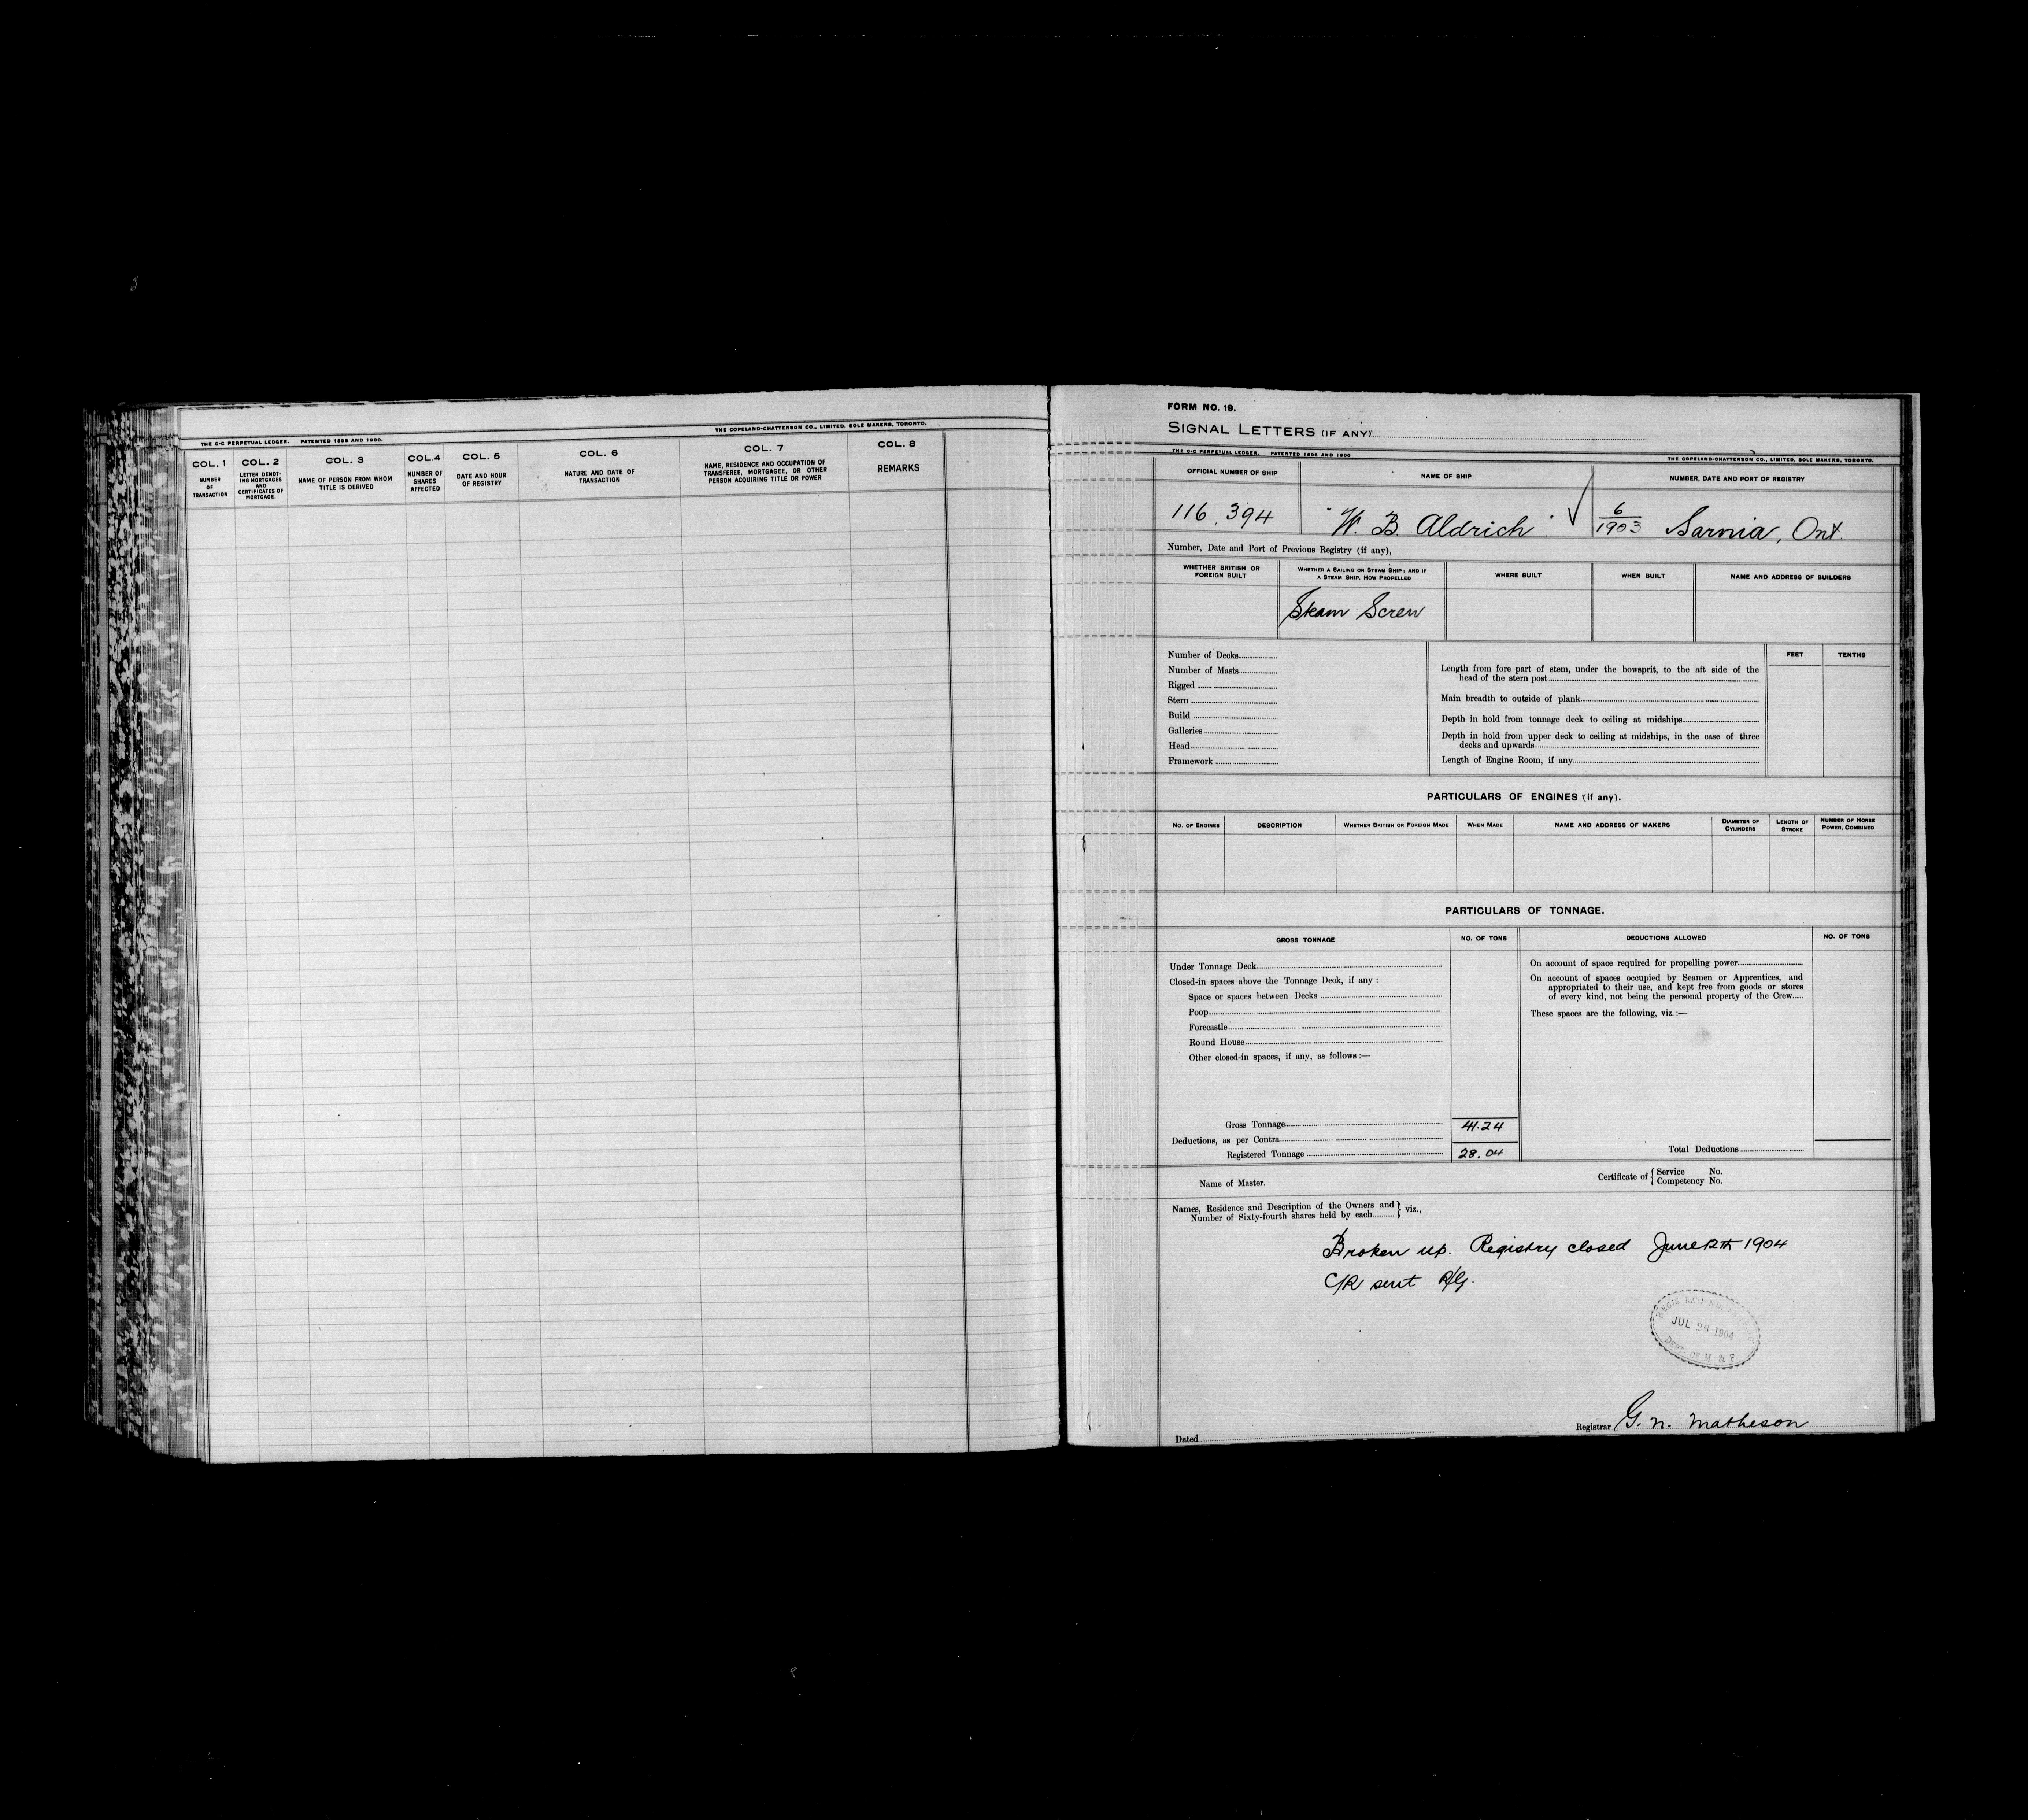 THE C-C PERPETUAL LEDGER. PATENTED 1896 AND 1900.
THE COPELAND-CHATTERSON CO., LIMITED, SOLE MAKERS, TORONTO.
COL. 1
NUMBER
OF
TRANSACTION
COL. 2
LETTER DENOT-
ING MORTGAGES
AND
CERTIFICATES OF
MORTGAGE.
COL. 3
NAME OF PERSON FROM WHOM
TITLE IS DERIVED
COL.4
NUMBER OF
SHARES
AFFECTED
COL. 5
DATE AND HOUR
OF REGISTRY
COL. 6
NATURE AND DATE OF
TRANSACTION
COL. 7
NAME, RESIDENCE AND OCCUPATION OF
TRANSFEREE, MORTGAGEE, OR OTHER
PERSON ACQUIRING TITLE OR POWER
COL. 8
REMARKS
FORM NO. 19.
SIGNAL LETTERS (IF ANY)
THE C-C PERPETUAL LEDGER. PATENTED 1896 AND 1900
THE COPELAND-CHATTERSON CO., LIMITED, SOLE MAKERS, TORONTO.
OFFICIAL NUMBER OF SHIP
NAME OF SHIP
NUMBER, DATE AND PORT OF REGISTRY
116,394
"W. B. Aldrich"
6/1903 Sarnia, Ont.
Number, Date and Port of Previous Registry (if any),
WHETHER BRITISH OR
FOREIGN BUILT
WHETHER A SAILING OR STEAM SHIP; AND IF
A STEAM SHIP, HOW PROPELLED
WHERE BUILT
WHEN BUILT
NAME AND ADDRESS OF BUILDERS
Steam Screw
Number of Decks
Number of Masts
Rigged
Stern
Build
Galleries
Head
Framework
FEET
TENTHS
Length from fore part of stem, under the bowsprit, to the aft side of the
head of the stern post
Main breadth to outside of plank
Depth in hold from tonnage deck to ceiling at midships
Depth in hold from upper deck to ceiling at midships, in the case of three
decks and upwards
Length of Engine Room, if any
PARTICULARS OF ENGINES (if any).
NO. OF ENGINES
DESCRIPTION
WHETHER BRITISH OR FOREIGN MADE
WHEN MADE
NAME AND ADDRESS OF MAKERS
DIAMETER OF
CYLINDERS
LENGTH OF
STROKE
NUMBER OF HORSE
POWER, COMBINED
PARTICULARS OF TONNAGE.
GROSS TONNAGE
NO. OF TONS
DEDUCTIONS ALLOWED
NO. OF TONS
Under Tonnage Deck
Closed-in spaces above the Tonnage Deck, if any :
Space or spaces between Decks
Poop
Forecastle
Round House
Other closed-in spaces, if any, as follows :—
On account of space required for propelling power
On account of spaces occupied by Seamen or Apprentices, and
appropriated to their use, and kept free from goods or stores
of every kind, not being the personal property of the Crew
These spaces are the following, viz. :—
Gross Tonnage 41.24
Deductions, as per Contra
Registered Tonnage 28.04
Total Deductions
Name of Master.
Certificate of { Service No.
Competency No.
Names, Residence and Description of the Owners and
Number of Sixty-fourth shares held by each } viz.,
Broken up. Registry closed June 12th 1904
C/R sent R/G.
JUL 26 1904
DEPT. OF M & F
Registrar G. N. Matheson
Dated